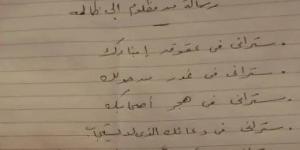 رسالة من مظلوم إلى ظالمه
ستراني في عقوق إبنائك
ستراني في غدر من حولك
ستراني في هجر أصحابك
ستراني في دعائك الذي لا يستجاب